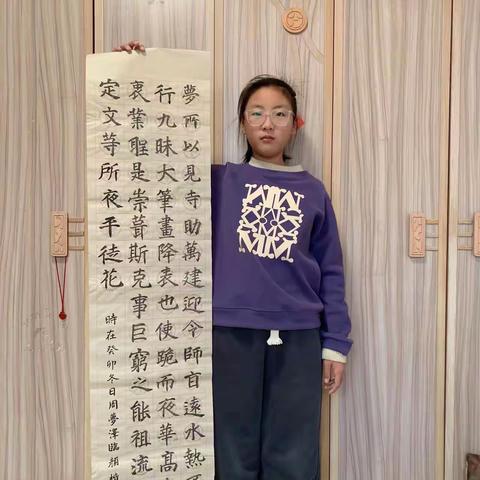 夢所以見寺助萬建迎令師百遠水熱
行九昧大筆畫降表也使跪而夜華高
衷業是崇葺斯克事巨窮之能祖流
定文等所夜平徒花
時在癸卯冬日周夢澤臨顏楷